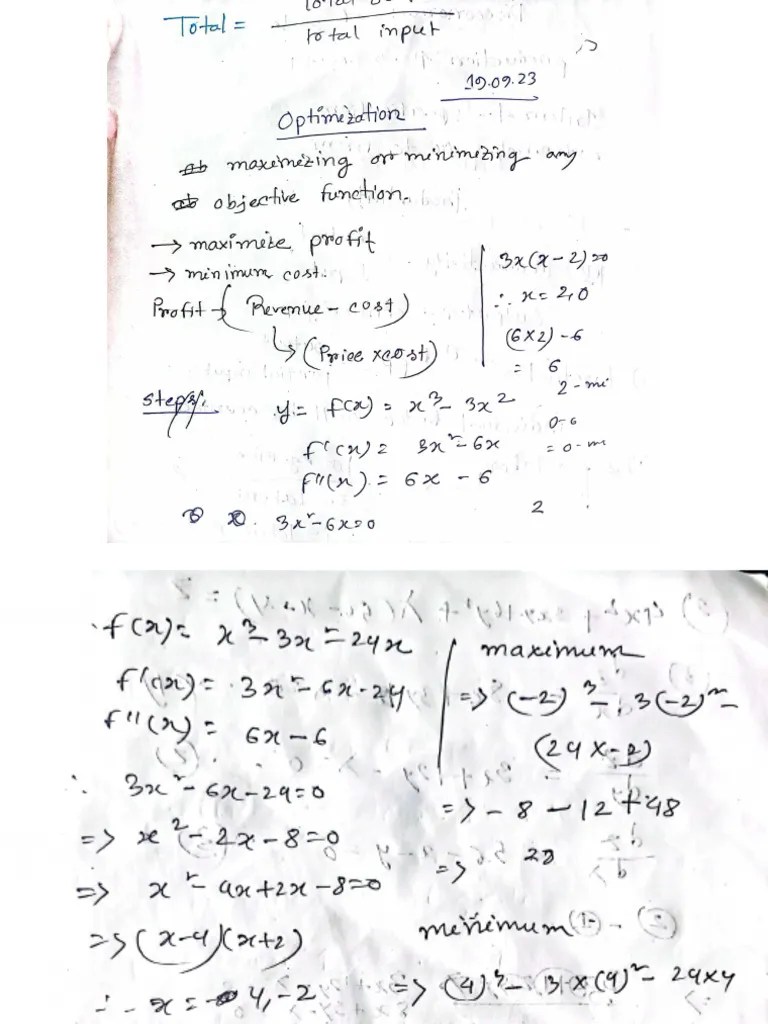 Total =
total input
19.09.23
Optimization
maximizing or minimizing any
objective function.
→ maximize profit
→ minimum cost.
Profit → (Revenue - cost)
↳ (Price × cost)
3x(x-2)=0
∴ x = 2,0
(6×2) - 6
= 6
2 - mi
0-6
= 0 - m
Steps:
y = f(x) = x³ - 3x²
f'(x) = 3x² - 6x
f''(x) = 6x - 6
3x² - 6x = 0
2
f(x) = x³ - 3x² - 24x
f'(x) = 3x² - 6x - 24
f''(x) = 6x - 6
∴ 3x² - 6x - 24 = 0
=> x² - 2x - 8 = 0
=> x² - 4x + 2x - 8 = 0
=> (x-4)(x+2)
∴ x = 4, -2
maximum
=> (-2)³ - 3(-2)² -
(24 × -2)
=> - 8 - 12 + 48
=> 28
minimum
=> (4)³ - 3 × (4)² - 24×4